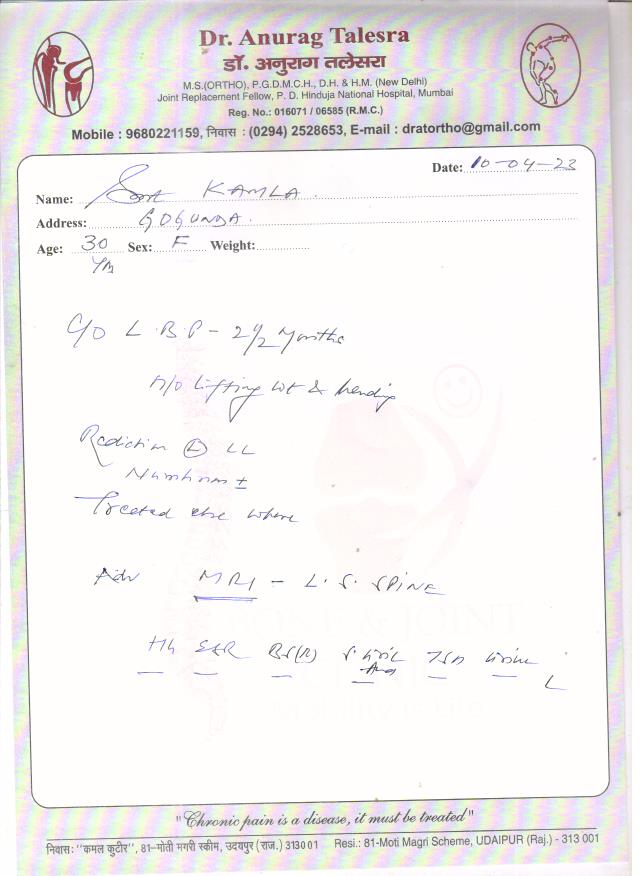 Dr. Anurag Talesra
डॉ. अनुराग तलेसरा
M.S.(ORTHO), P.G.D.M.C.H., D.H. & H.M. (New Delhi)
Joint Replacement Fellow, P. D. Hinduja National Hospital, Mumbai
Reg. No.: 016071 / 06585 (R.M.C.)
Mobile : 9680221159, निवास : (0294) 2528653, E-mail : dratortho@gmail.com
Date: 10-04-23
Name: Smt KAMLA
Address: GOGUNDA
Age: 30 Sex: F Weight:
C/O L.B.P - 2½ Months
H/O Lifting wt & bending
Radiation (L) LL
Numbness ±
Treated else where
Adv MRI - L.S. SPINE
Hb ESR BS(R) S. Uric TSH Urine
Acid
BONE & JOINT
Mobility is Life
"Chronic pain is a disease, it must be treated"
निवास: "कमल कुटीर", 81-मोती मगरी स्कीम, उदयपुर (राज.) 313001 Resi.: 81-Moti Magri Scheme, UDAIPUR (Raj.) - 313 001